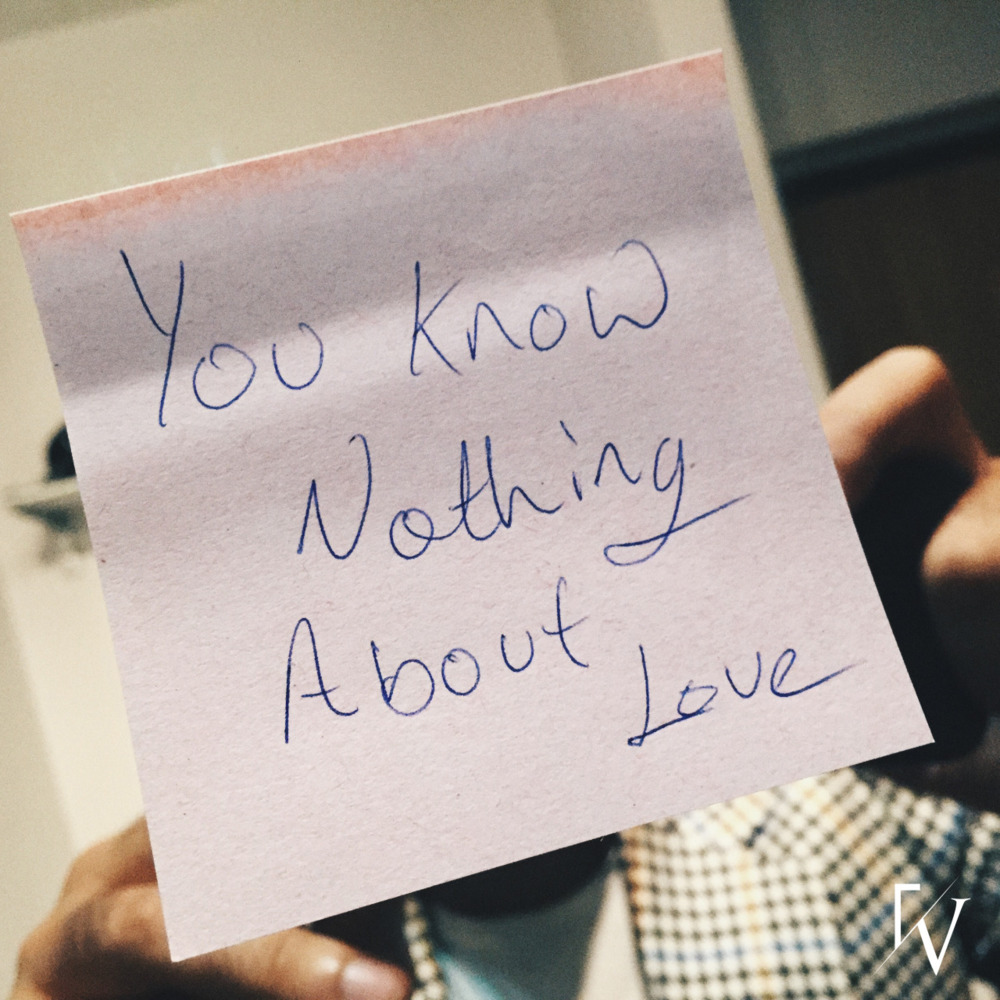 You Know
Nothing
About Love